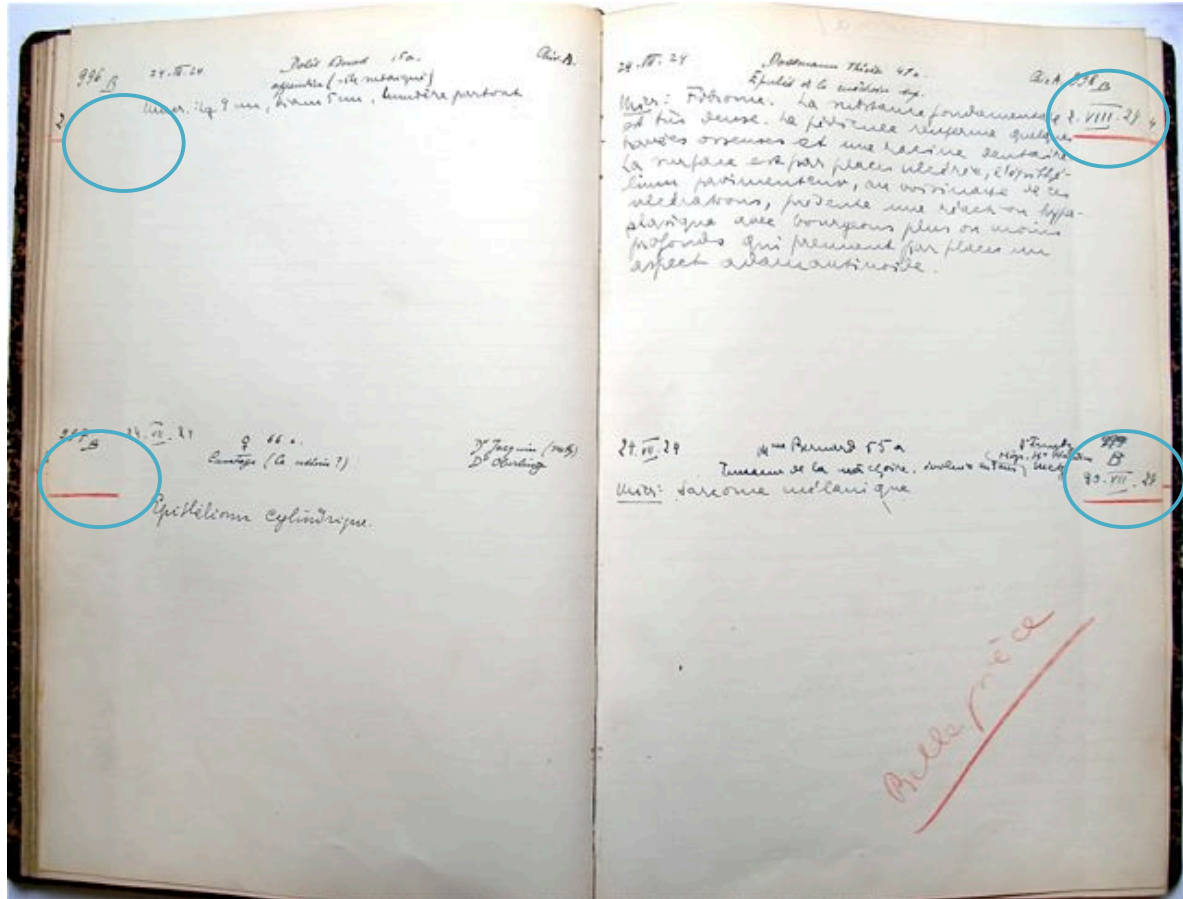 996 B 24.VII.24 15a. Chir. B.
appendice
Micr. : lg 9 cm, diam 5 mm, lumière partout
997 B 24.VII.24 ♀ 66 a. Dr Jacquin (Metz)
Dr Oberling
Epithélioma cylindrique.
24.VII.24 47a. Chir. A 998 B
Epulis de la mâchoire sup.
Micr: Fibrome. La substance fondamentale 2.VIII.24
est très dense. Le pédicule renferme quelques
travées osseuses et une racine dentaire
La surface est par places ulcérée, l'épithé-
lium pavimenteux, au voisinage de ces
ulcérations, présente une réaction hyper-
plasique avec bourgeons plus ou moins
profonds qui prennent par places un
aspect adamantinoïde.
24.VII.24 Mme Bernard 55a 999
Tumeur de la mâchoire. B
Micr: Sarcome mélanique
Belle pièce